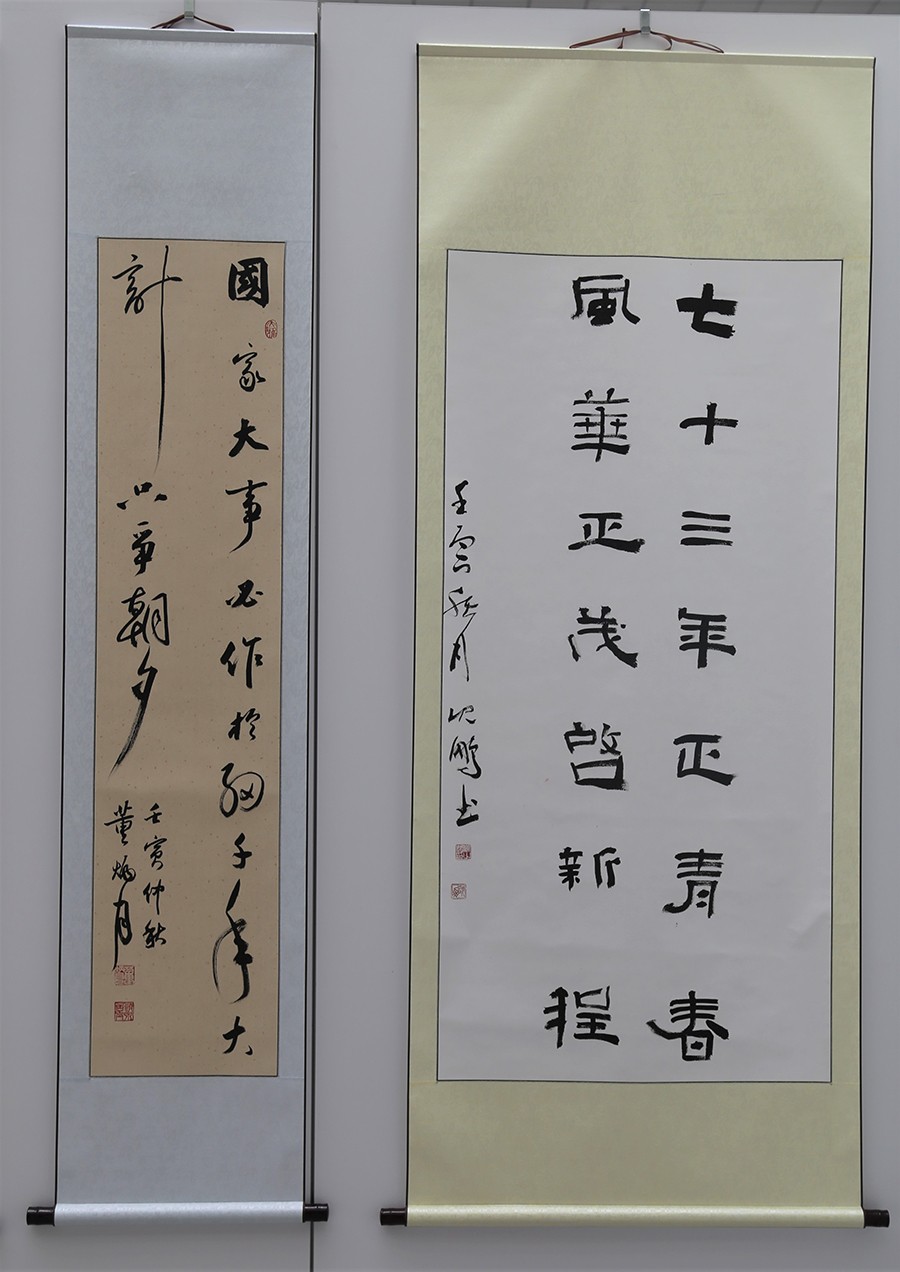 七十三年正青春
風華正茂啓新程
壬寅秋月 鵬书
國家大事必作於細千年大
計只爭朝夕
壬寅仲秋
董 月